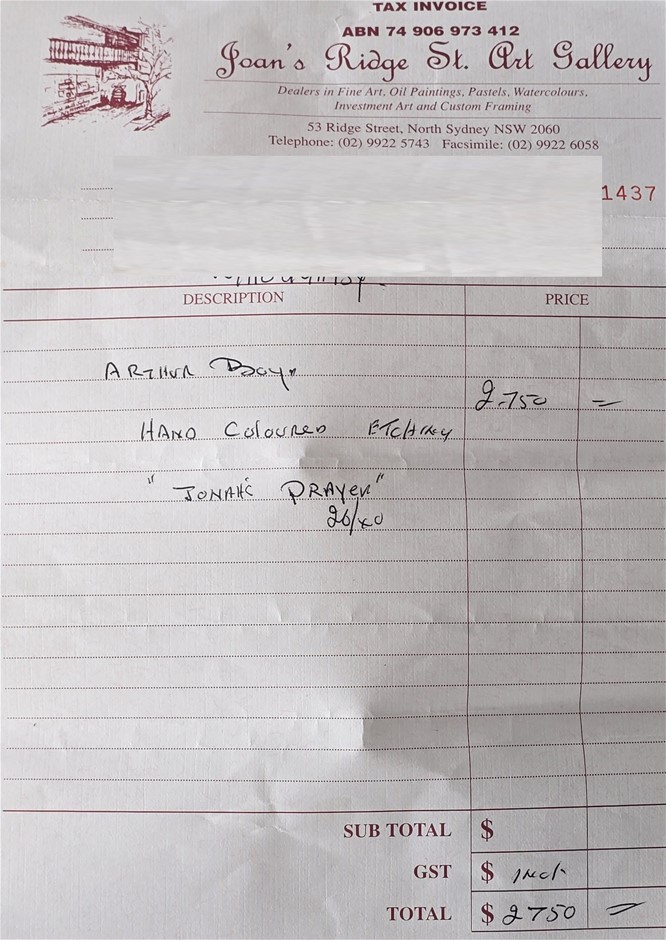 TAX INVOICE
ABN 74 906 973 412
Joan's Ridge St. Art Gallery
Dealers in Fine Art, Oil Paintings, Pastels, Watercolours,
Investment Art and Custom Framing
53 Ridge Street, North Sydney NSW 2060
Telephone: (02) 9922 5743 Facsimile: (02) 9922 6058
1437
DESCRIPTION PRICE
ARTHUR Boyd
2.750 =
HAND COLOURED ETCHING
"JONAH'S PRAYER"
26/40
SUB TOTAL $
GST $ incl.
TOTAL $ 2750 =